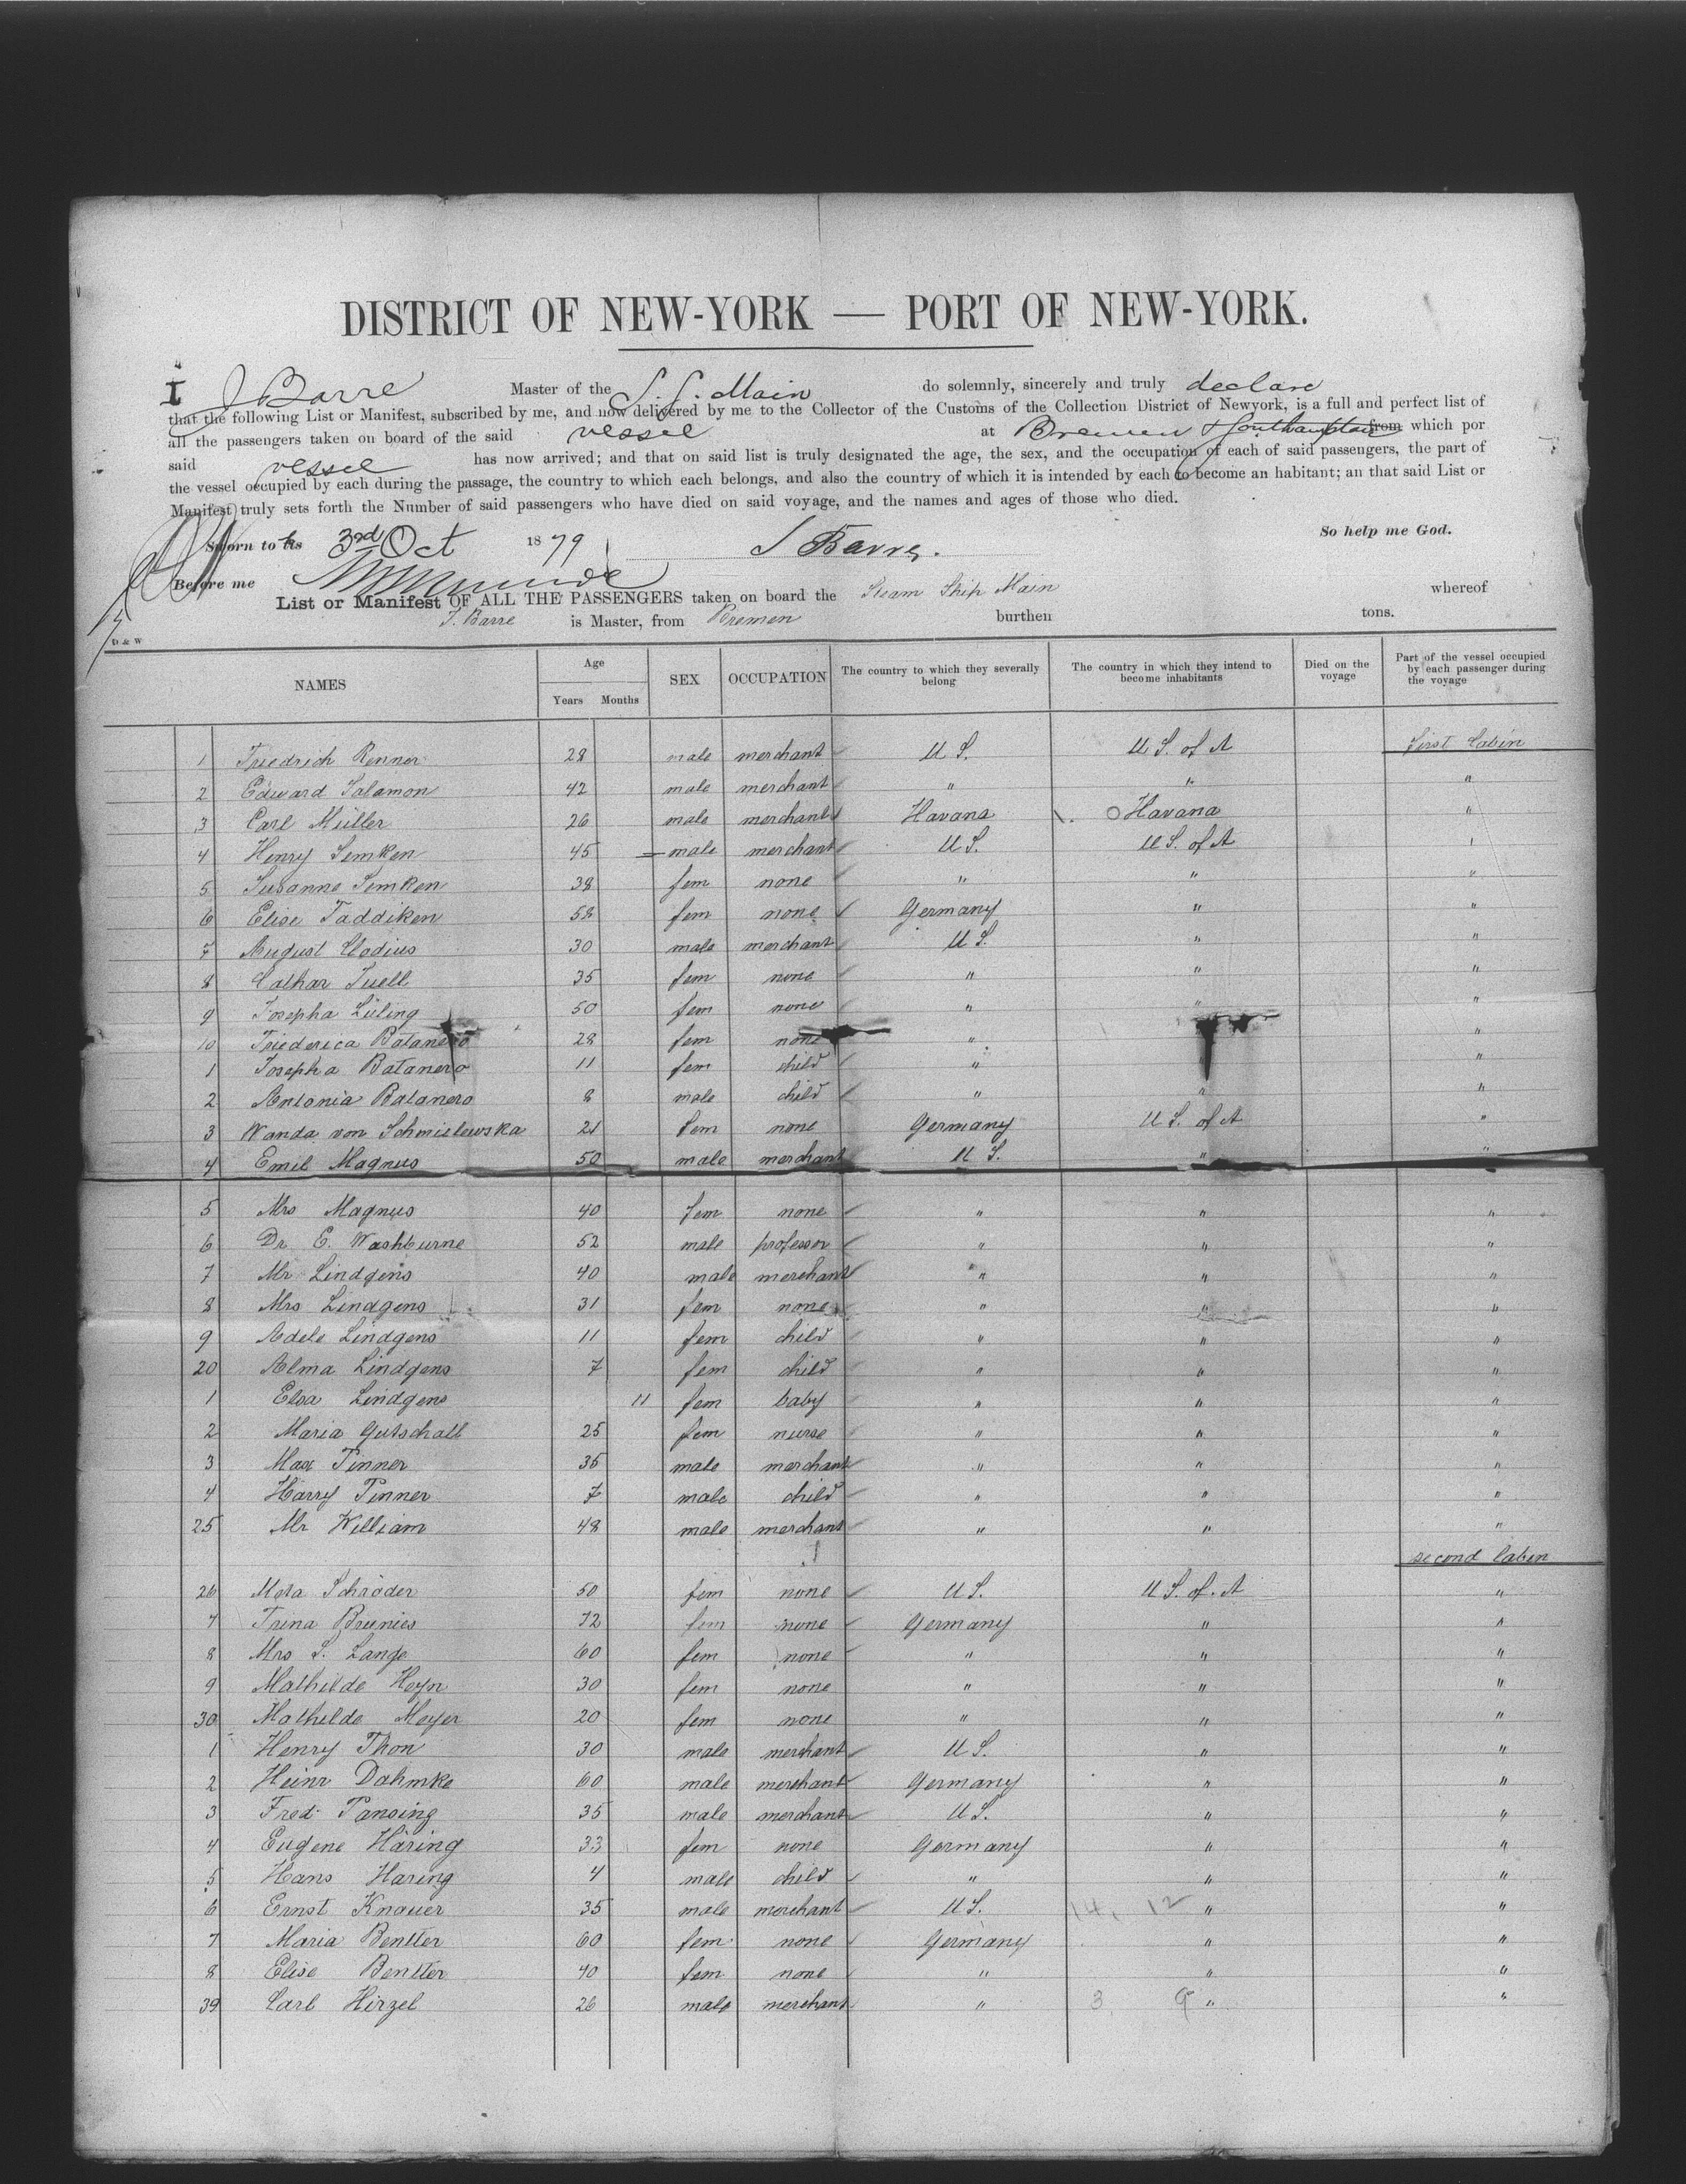 DISTRICT OF NEW-YORK — PORT OF NEW-YORK.
I J Barre Master of the S. S. Main do solemnly, sincerely and truly declare
that the following List or Manifest, subscribed by me, and now delivered by me to the Collector of the Customs of the Collection District of Newyork, is a full and perfect list of
all the passengers taken on board of the said vessel at Bremen & Southampton from which por
said vessel has now arrived; and that on said list is truly designated the age, the sex, and the occupation of each of said passengers, the part of
the vessel occupied by each during the passage, the country to which each belongs, and also the country of which it is intended by each to become an habitant; an that said List or
Manifest truly sets forth the Number of said passengers who have died on said voyage, and the names and ages of those who died.
So help me God.
Sworn to this 3rd Oct 1879 J Barre.
Before me
List or Manifest OF ALL THE PASSENGERS taken on board the Steam Ship Main whereof
J. Barre is Master, from Bremen burthen tons.
D & W
NAMES Age Years Months SEX OCCUPATION The country to which they severally belong The country in which they intend to become inhabitants Died on the voyage Part of the vessel occupied by each passenger during the voyage
first Cabin
1 Friedrich Renner 28 male merchant U S. U S. of A
2 Edward Salamon 42 male merchant " " "
3 Carl Müller 26 male merchant Havana Havana "
4 Henry Semken 45 male merchant U S. U S. of A "
5 Susanne Semken 38 fem none " " "
6 Elise Taddiken 58 fem none Germany " "
7 August Clodius 30 male merchant U S. " "
8 Cathar Tuell 35 fem none " " "
9 Josepha Lüling 50 fem none " " "
10 Friederica Batanero 28 fem none " "
1 Josepha Batanero 11 fem child " " "
2 Antonia Batanero 8 male child " " "
3 Wanda von Schmielewska 21 fem none Germany U S. of A "
4 Emil Magnus 50 male merchant U S. " "
5 Mrs Magnus 40 fem none " " "
6 Dr E. Washburne 52 male professor " " "
7 Mr Lindgens 40 male merchant " " "
8 Mrs Lindgens 31 fem none " " "
9 Adele Lindgens 11 fem child " " "
20 Alma Lindgens 7 fem child " " "
1 Elsa Lindgens 11 fem baby " " "
2 Maria Gutschall 25 fem nurse " " "
3 Max Pinner 35 male merchant " " "
4 Harry Pinner 7 male child " " "
25 Mr William 48 male merchant " " "
second Cabin
26 Meta Schröder 50 fem none U S. U S. of. A "
7 Trina Brunies 72 fem none Germany " "
8 Mrs S. Lange 60 fem none " " "
9 Mathilde Heyn 30 fem none " " "
30 Mathilde Meyer 20 fem none " " "
1 Henry Thon 30 male merchant U S. " "
2 Heinr Dahmke 60 male merchant Germany " "
3 Fred. Pansing 35 male merchant U S. " "
4 Eugene Häring 33 fem none Germany " "
5 Hans Haring 4 male child " " "
6 Ernst Knauer 35 male merchant U S. 14, 12 " "
7 Maria Bentter 60 fem none Germany " "
8 Elise Bentter 40 fem none " " "
39 Carl Hirzel 26 male merchant " 3, 9 " "